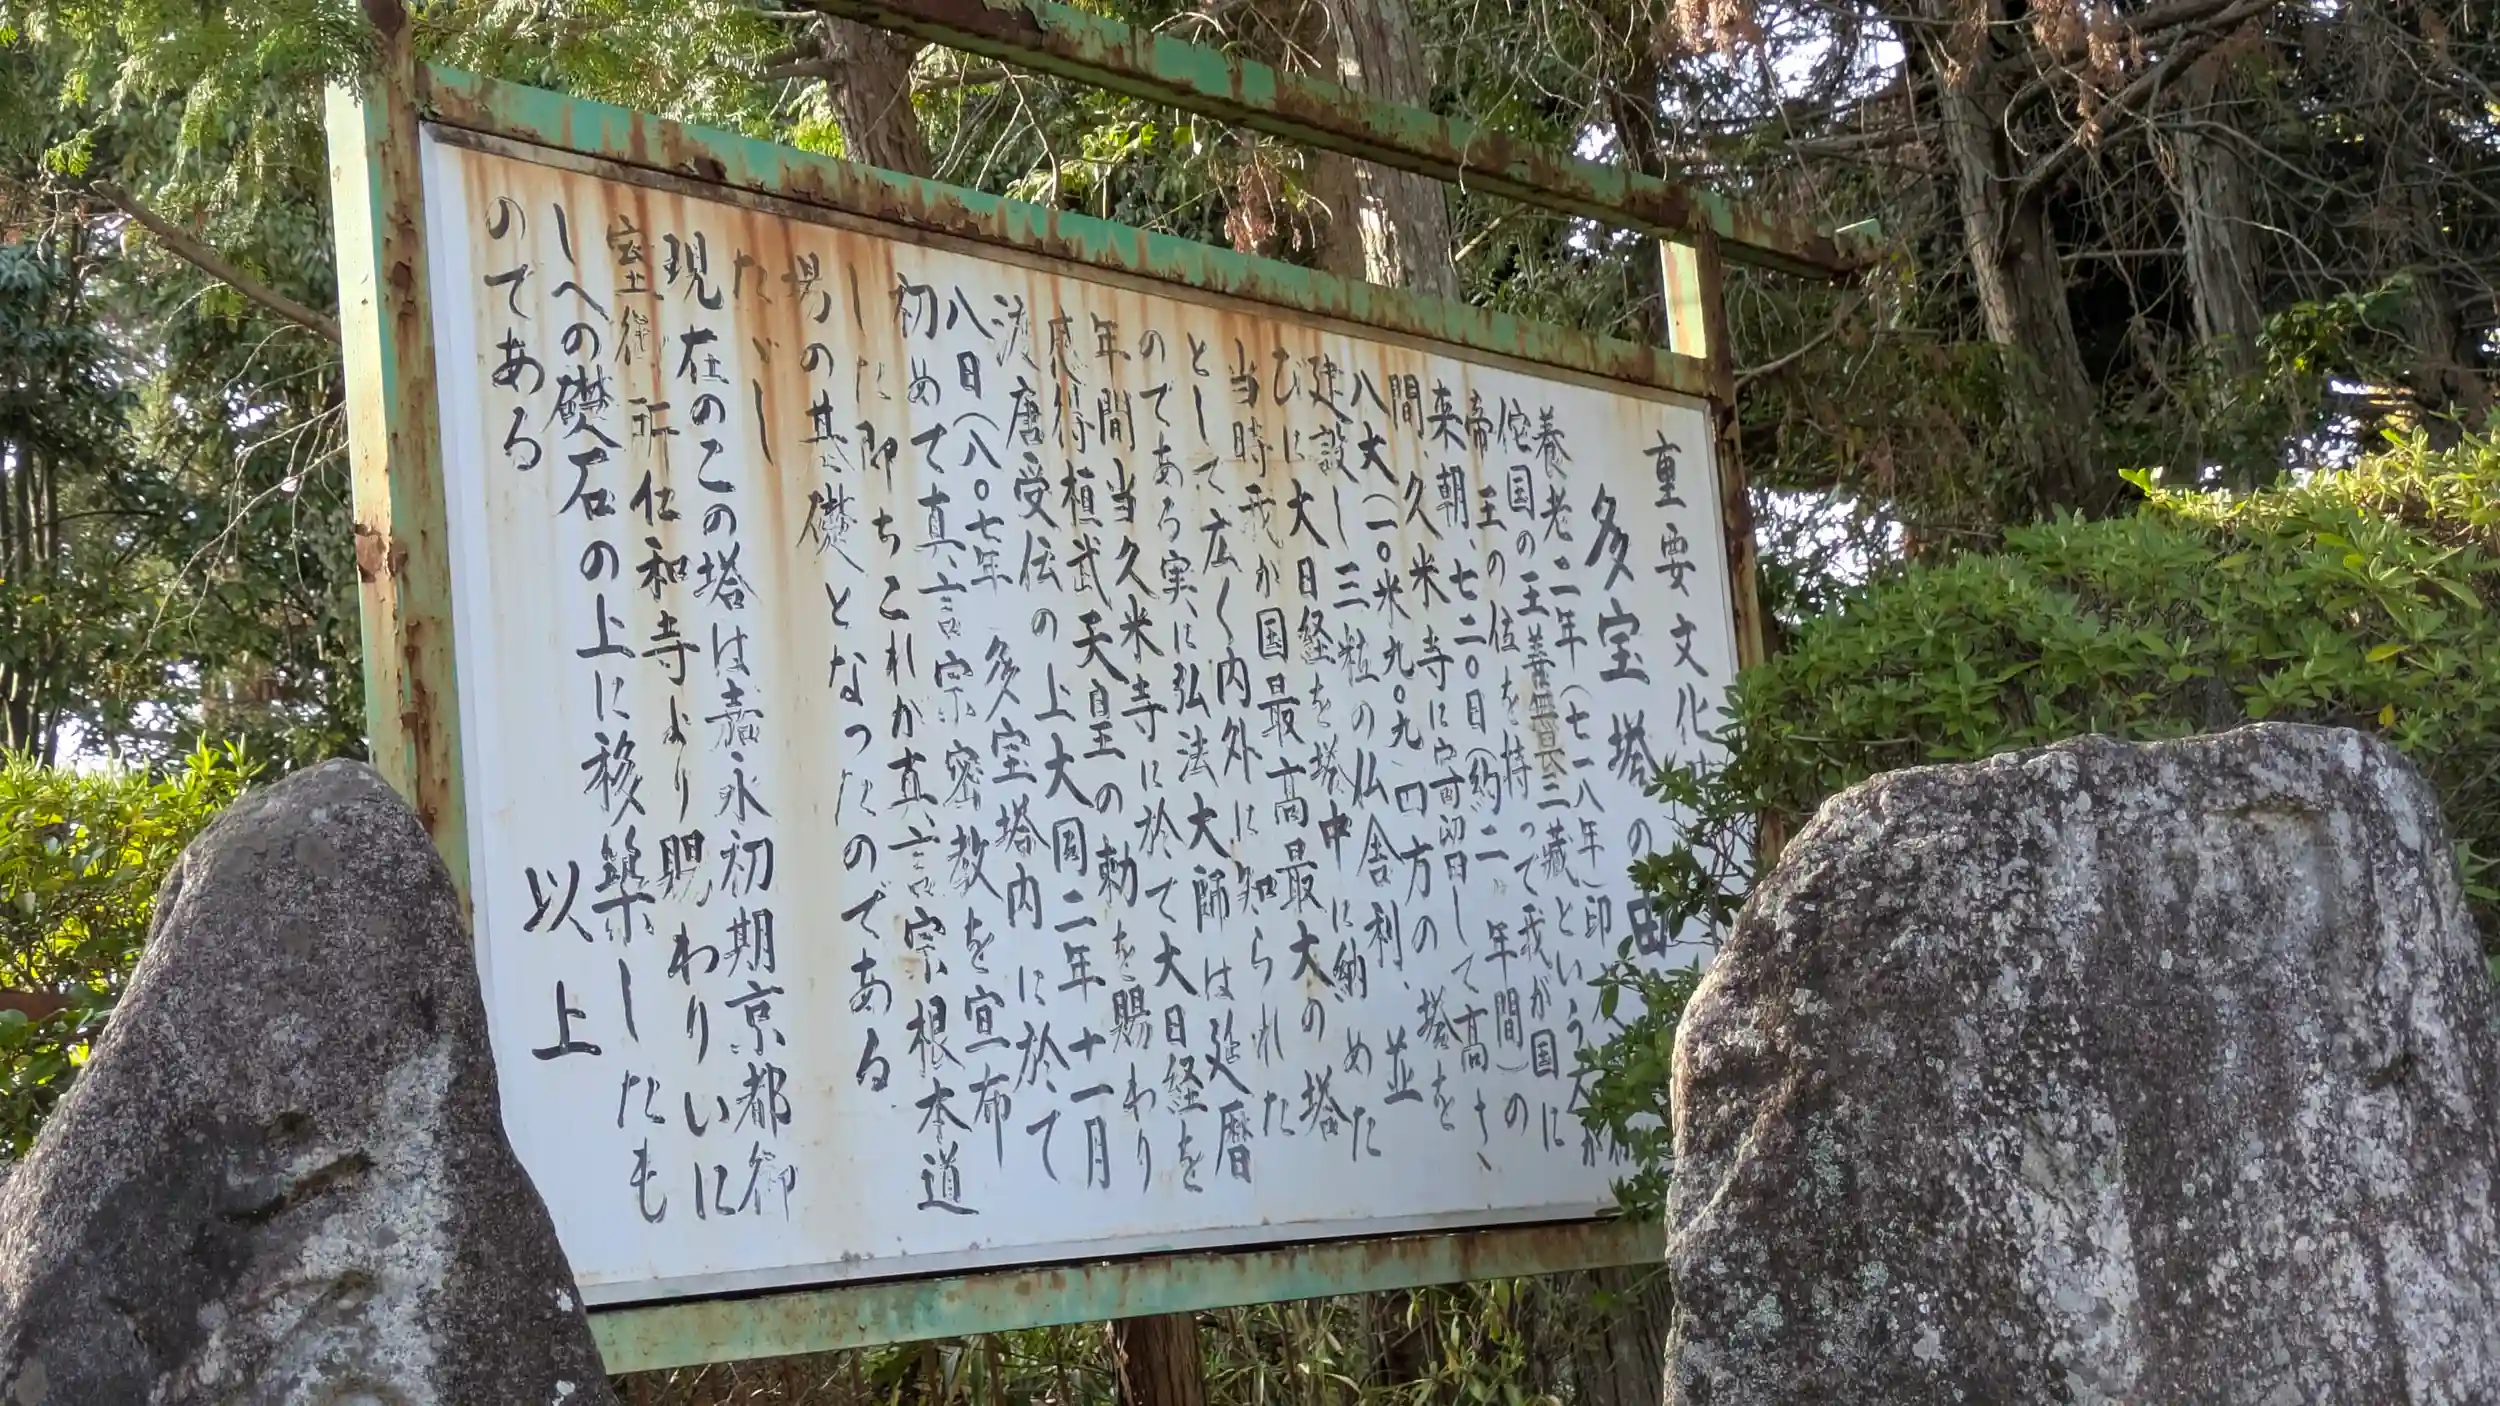 重要文化
多宝塔の由
養老二年（七一八年）印
佗国の王善無畏三藏という大
帝王の位を持って我が国に
来朝、七二〇日（約二ヶ年間）の
間、久米寺に寄留して高さ、
八丈（一〇米九〇九）四方の塔を
建設し三粒の仏舎利、並
びに大日経を塔中に納めた
当時我が国最高最大の塔
として広く内外に知られた
のである実に弘法大師は延暦
年間当久米寺に於て大日経を
感得桓武天皇の勅を賜わり
渡唐受伝の上大同二年十一月
八日（八〇七年）多宝塔内に於て
初めて真言宗密教を宣布
した即ちこれが真言宗根本道
場の基礎となったのである
たゞし
現在のこの塔は嘉永初期京都御
室御所仁和寺より賜わりいに
しへの礎石の上に移築したも
のである
以上